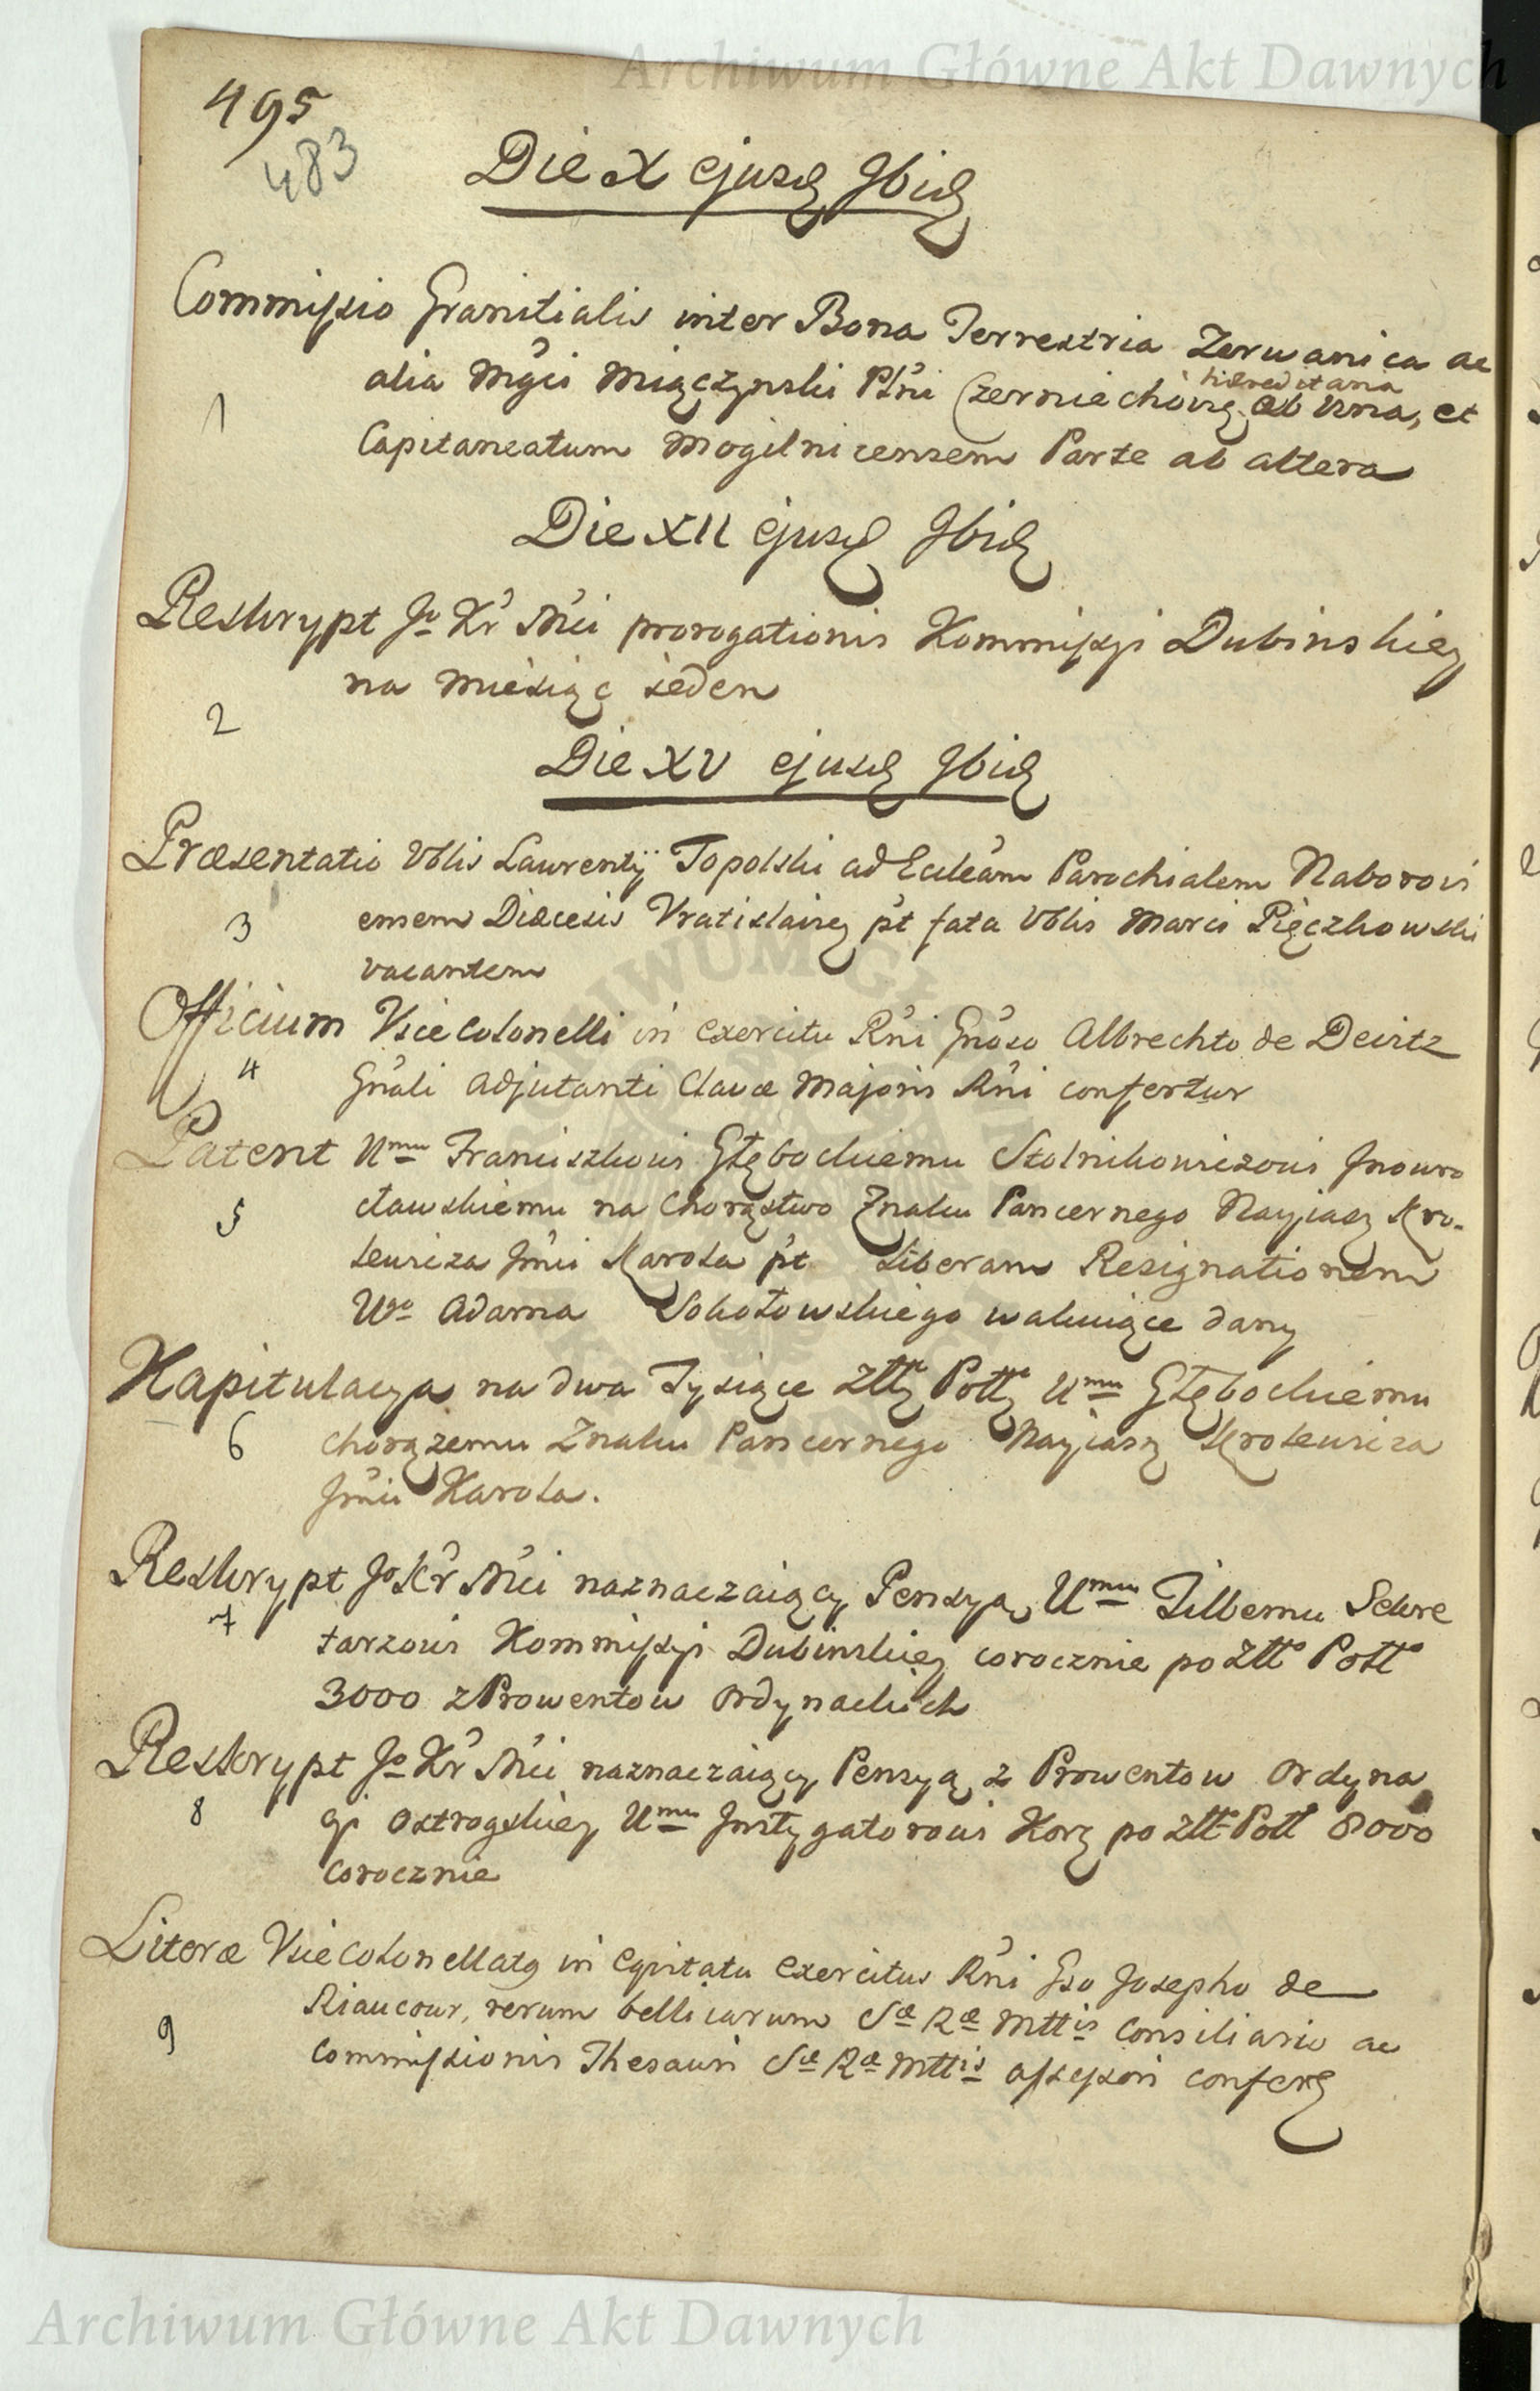 Archiwum Główne Akt Dawnych
495
483
Die X ejusd 9bis
Commissio Granitialis inter Bona Terrestria Zerwanica ac
alia Mgci Miączynski Ptni Czerniechov hæreditaria ab una, et
1
Capitaneatum Mogilnicensem Parte ab altera
Die XII ejusd 9bis
Reskrypt Jo Kr Mci prorogationis Kommissyi Dubinskiey
na miesiąc ieden
2
Die XV ejusd 9bis
Præsentatio Vblis Laurentÿ Topolski ad Eccleam Parochialem Naborovi
3
ensem Diæcesis Vratislavien pt fata Vblis Marci Pięczkowski
vacantem
Officium Vicecolonelli in Exercitu Rni Gnoso Albrechto de Deirtz
4
Gnali Adjutanti Clavæ Majoris Rni confertur
Patent Umu Franciszkowi Głębockiemu Stolnikowiczowi Inowro
5
cławskiemu na Chorąstwo Znaku Pancernego Nayiasz Kro-
lewicza Jmci Karola pt liberam Resignationem
Uo Adama Sokołowskiego wakuiące dany
Kapitulacya na dwa Tysiące Złł Poll Umu Głębockiemu
6
Chorążemu Znaku Pancernego Nayiasz Krolewicza
Jmci Karola.
Reskrypt Jo Kr Mci naznaczaiący Pensyą Umu Tilbemu Sekre
7
tarzowi Kommissyi Dubinskiey corocznie po Złł Poll
3000 z Prowentow Ordynackich
Reskrypt Jo Kr Mci naznaczaiący Pensyą z Prowentow Ordyna
8
cyi Ostrogskiey Umu Instygatorowi Kor po Złł Poll 8000
corocznie
Literæ Vicecolonellatg in Eqvitatu Exercitus Rni Gso Josepho de
Riaucour, rerum bellicarum Sæ Ræ Mttis Consiliario ac
9
Commissionis Thesauri Sæ Ræ Mttis assessori confer
Archiwum Główne Akt Dawnych